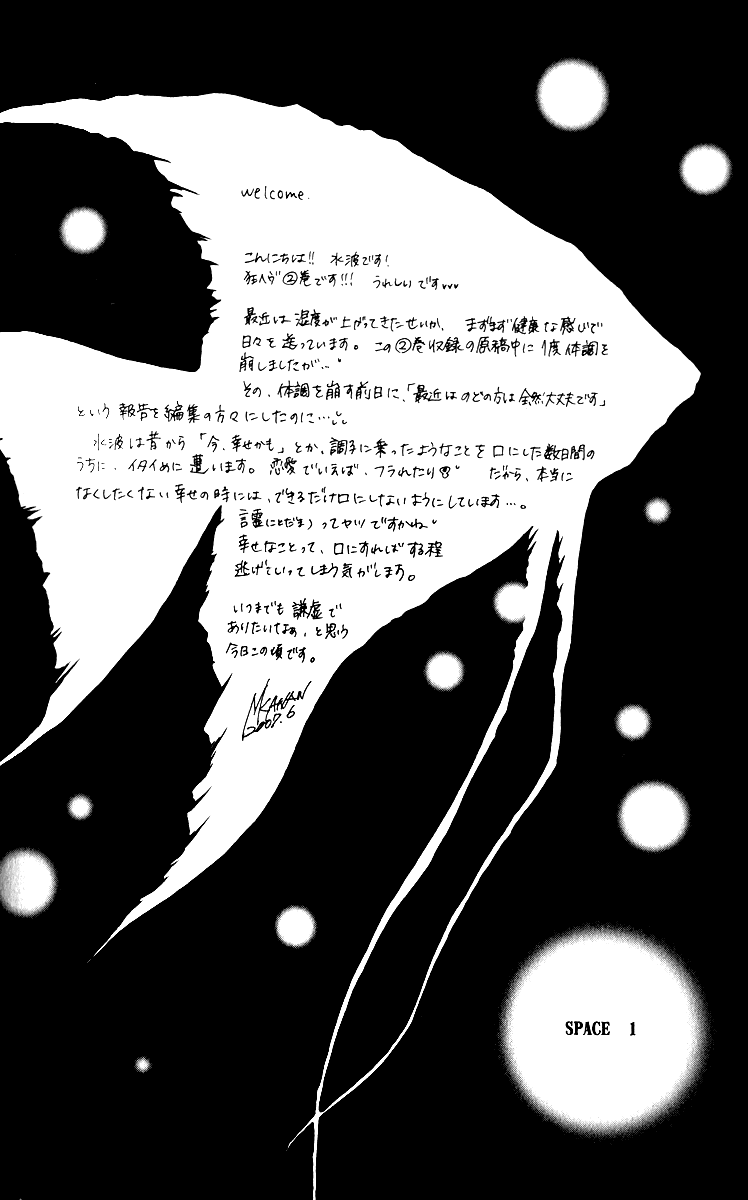 welcome.
こんにちは!! 水波です!
狂ヘヴ②巻です!!! うれしいです♥♥♥
最近は湿度が上がってきたせいか、まずまず健康な感じで
日々を送っています。この②巻収録の原稿中に1度体調を
崩しましたが…
その、体調を崩す前日に、「最近はのどの方は全然大丈夫です」
という報告を編集の方々にしたのに…
水波は昔から「今、幸せかも」とか、調子に乗ったようなことを口にした数日間の
うちに、イタイめに遭います。恋愛でいえば、フラれたり だから、本当に
なくしたくない幸せの時には、できるだけ口にしないようにしています…。
言霊(ことだま)ってヤツですかね
幸せなことって、口にすればする程
逃げていってしまう気がします。
いつまでも謙虚で
ありたいなぁ、と思う
今日この頃です。
M.KANAN
2007.6
SPACE 1